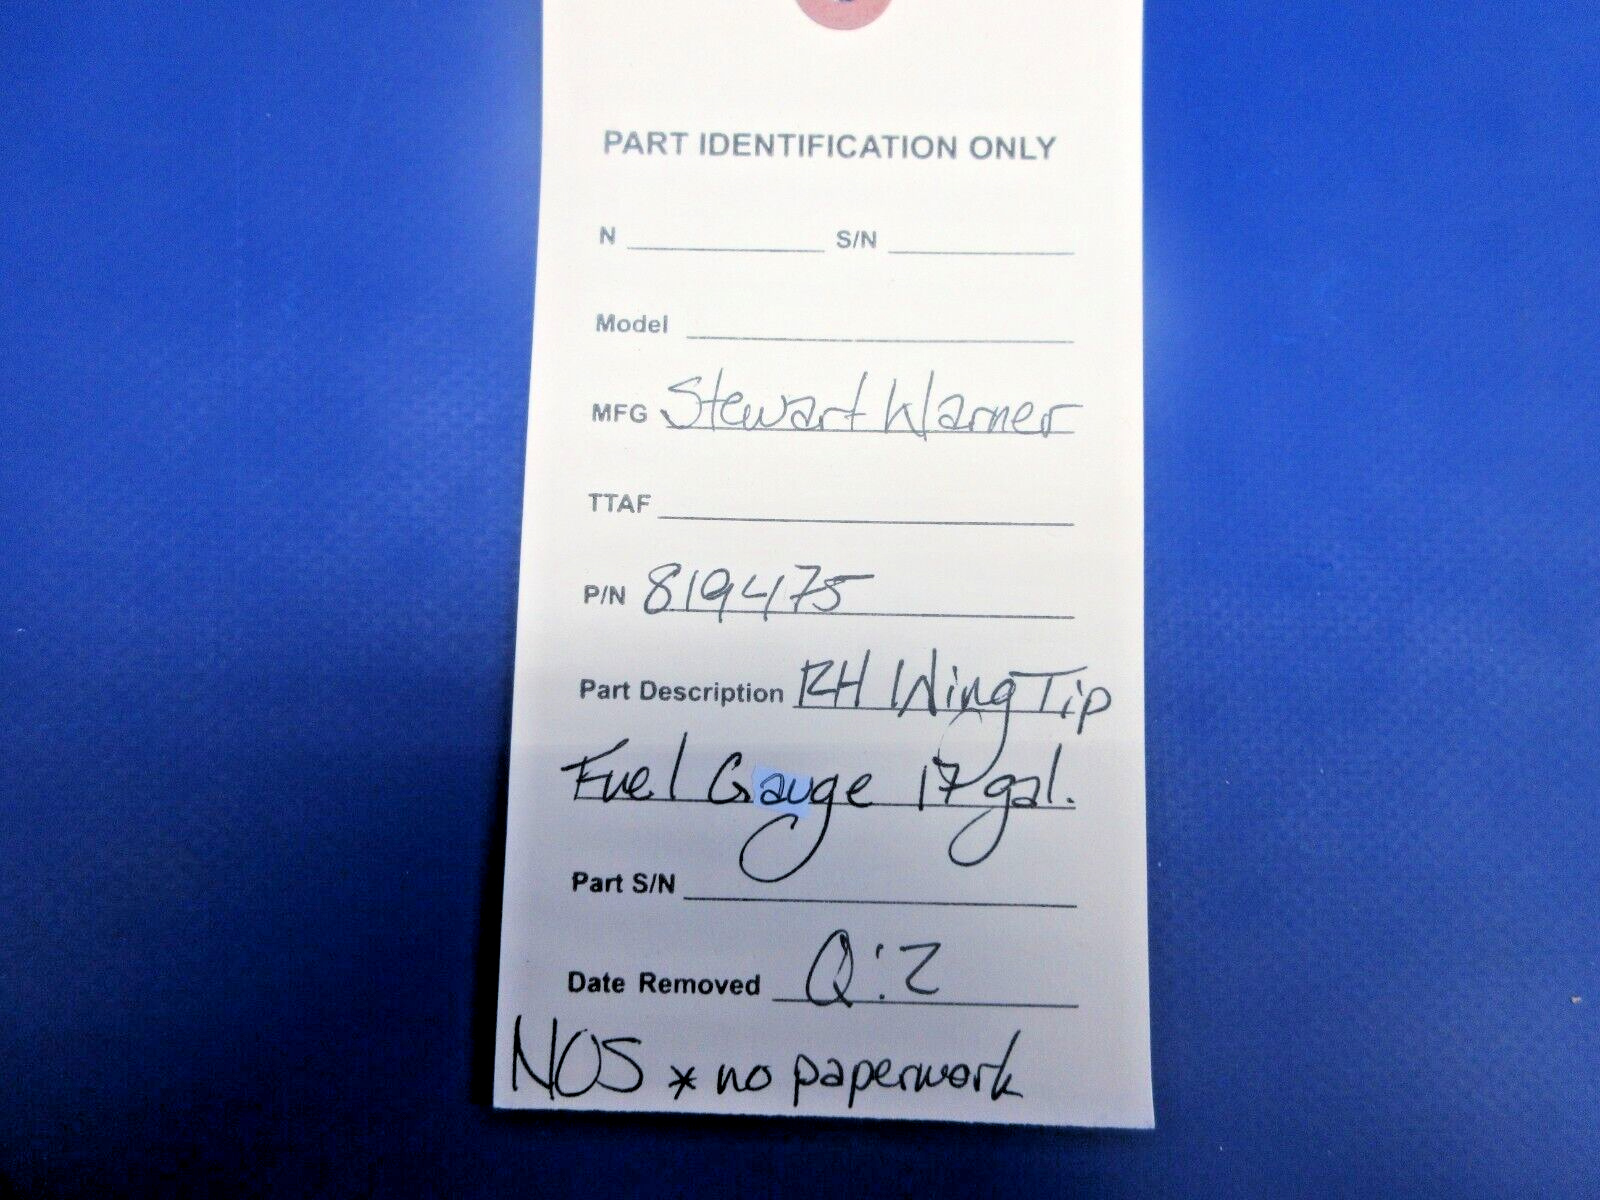 PART IDENTIFICATION ONLY
N S/N
Model
MFG Stewart Warner
TTAF
P/N 819475
Part Description RH Wing Tip
Fuel Gauge 17 gal.
Part S/N
Date Removed Q:2
NOS * no paperwork